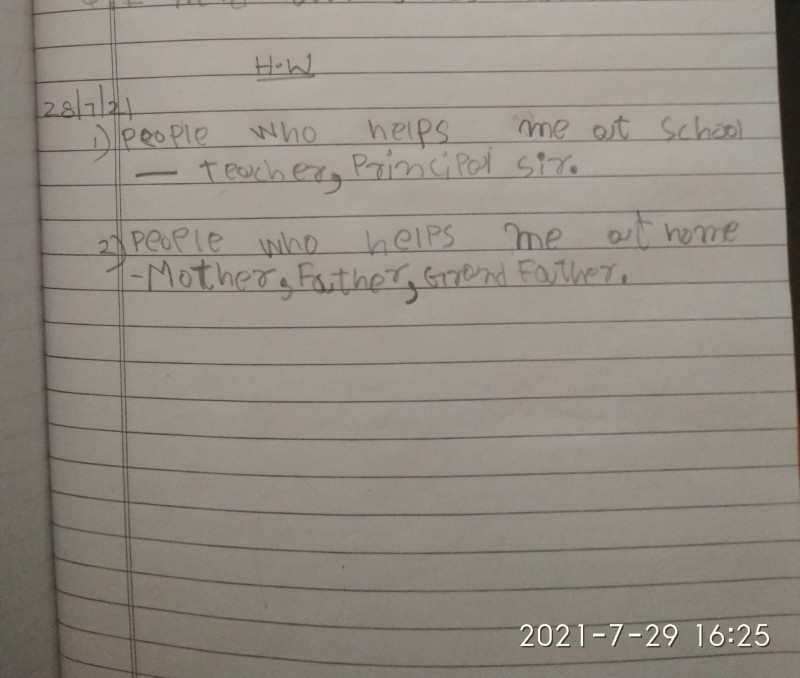 H.W
28/7/21
1) People who helps me at school
— teacher, Principal sir.
2) People who helps me at home
- Mother, Father, Grand Father.
2021-7-29 16:25